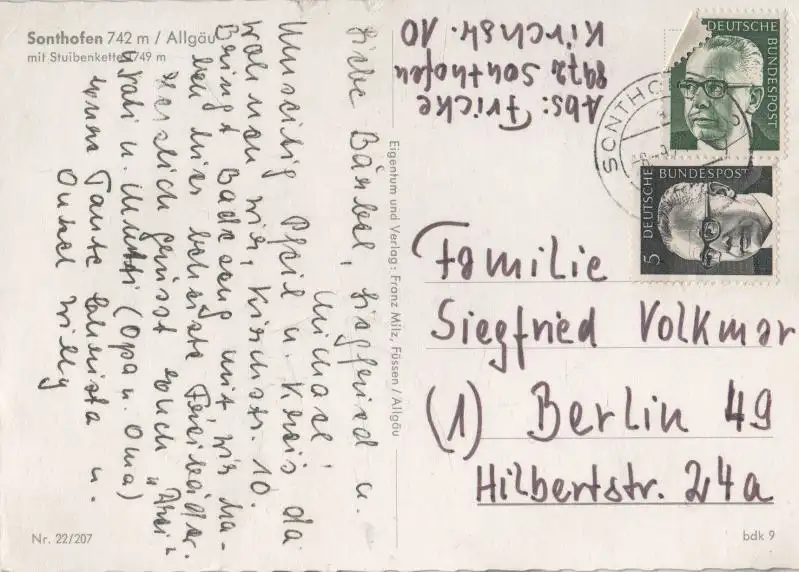 Sonthofen 742 m / Allgäu
mit Stuibenkette 1749 m
Liebe Bärbel, Siegfried u.
Michael!
Umseitig Pfeil u. Kreis da
wohnen wir, Kirchstr. 10.
Bringt Badezeug mit, wir ha-
ben hier beheizte Freibäder.
Herzlich grüsst Euch
Vati u. Mutti (Opa u. Oma)
Tante u.
Onkel Willy
Eigentum und Verlag: Franz Milz, Füssen / Allgäu
Nr. 22/207
Abs: Fricke
8972 Sonthofen
Kirchstr. 10
DEUTSCHE BUNDESPOST
SONTHO
5 DEUTSCHE BUNDESPOST
Familie
Siegfried Volkmar
(1) Berlin 49
Hilbertstr. 24a
bdk 9